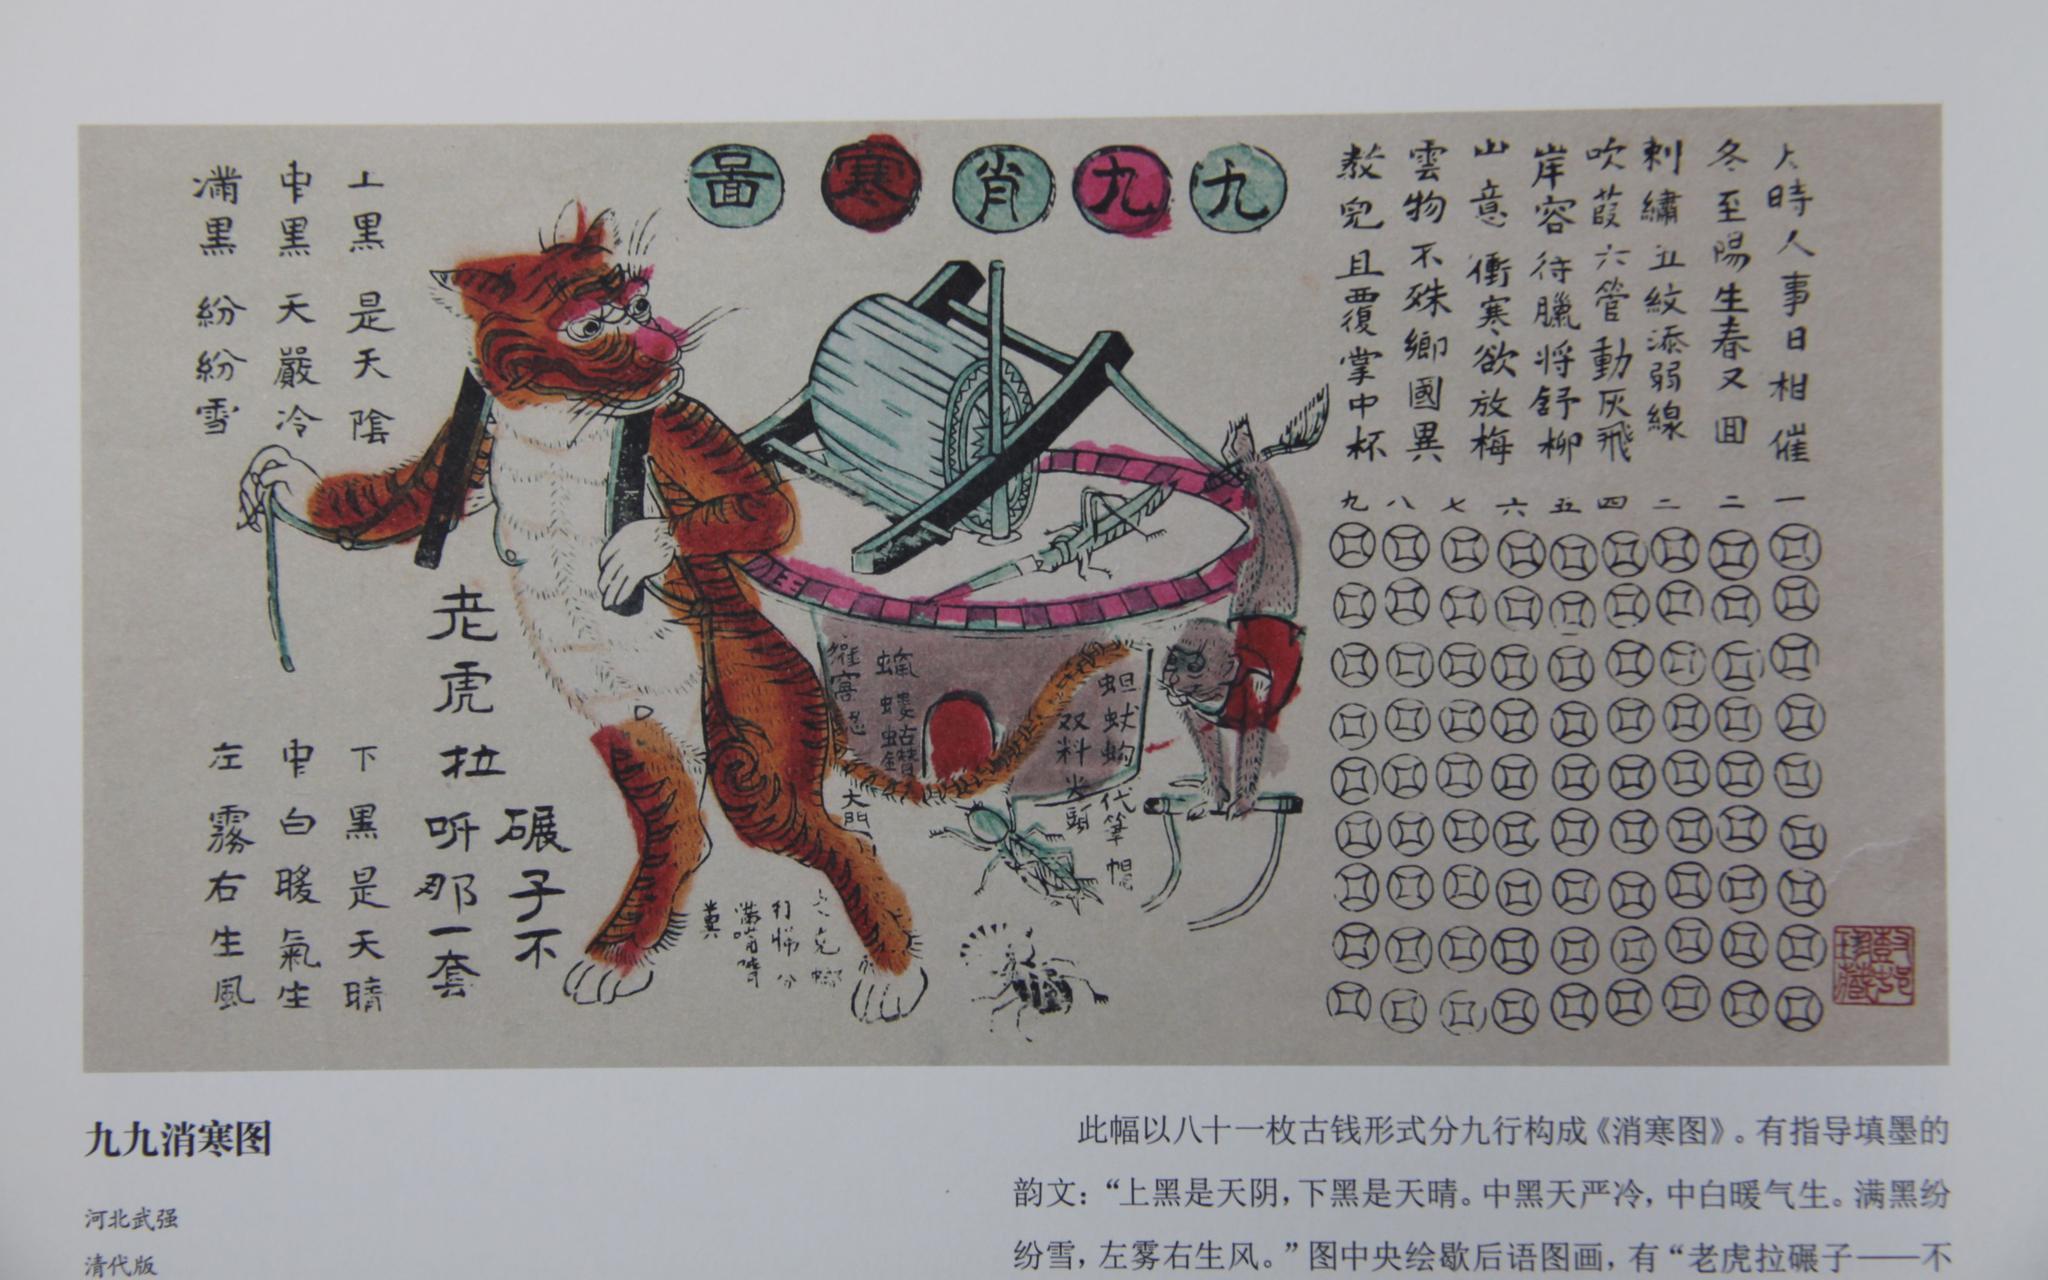 九九肖寒啚
大時人事日相催
冬至陽生春又囬
刺繡五紋添弱線
吹葭六管動灰飛
岸容待臘将舒柳
山意衝寒欲放梅
雲物不殊鄉國異
教兒且覆掌中杯
一
二
四
五
六
七
八
九
上黑是天陰
中黑天嚴冷
滿黑紛紛雪
下黑是天晴
中白暖氣生
左霧右生風
老虎拉
碾子不
听那一套
双料
大門
打
糞
九九消寒图
河北武强
清代版
此幅以八十一枚古钱形式分九行构成《消寒图》。有指导填墨的
韵文：“上黑是天阴，下黑是天晴。中黑天严冷，中白暖气生。满黑纷
纷雪，左雾右生风。”图中央绘歇后语图画，有“老虎拉碾子——不